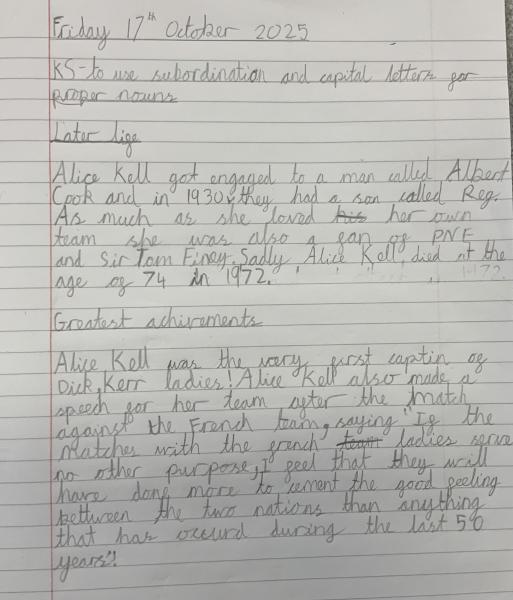 Friday 17th October 2025
KS-to use subordination and capital letters for
proper nouns
Later life
Alice Kell got engaged to a man called Albert
Cook and in 1930, they had a son called Reg.
As much as she loved his her own
team she was also a fan of PNF
and Sir Tom Finey. Sadly Alice Kell died at the
age of 74 in 1972.
Greatest achivements
Alice Kell was the very first captin of
Dick, Kerr ladies! Alice Kell also made a
speech for her team after the match
against the French team, saying "If the
matches with the french team ladies serve
no other purpose, I feel that they will
have done more to cement the good feeling
bettween the two nations than anything
that has occurd during the last 50
years"!